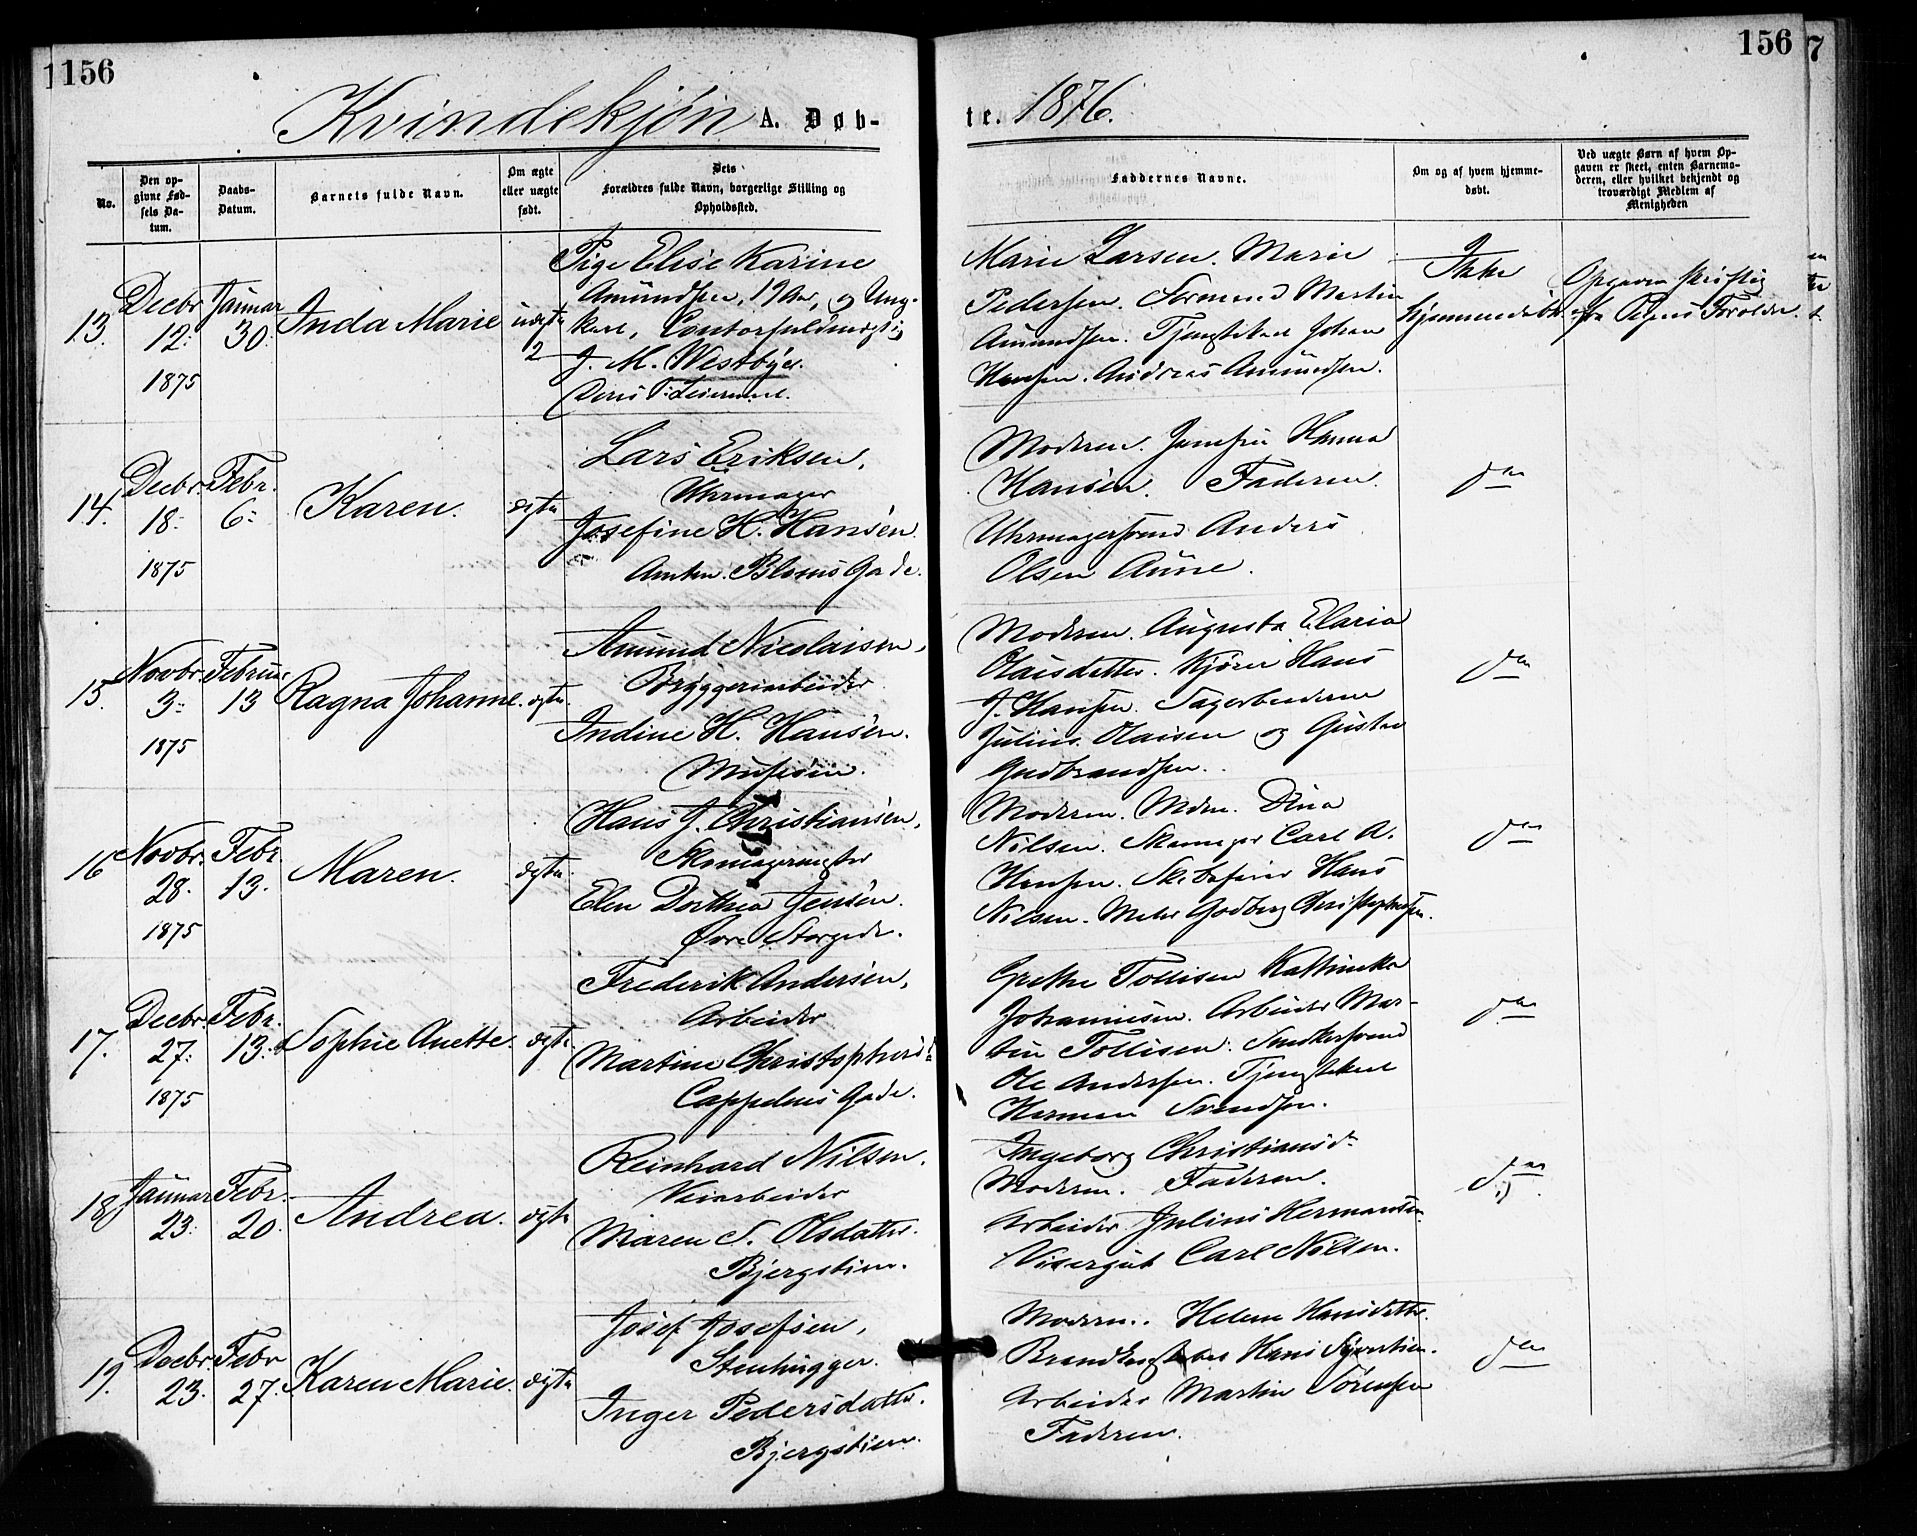 156
156
7
Kvindekjön A. Døb-
te. 1876.
No.
Den op-
givne Fød-
sels Da-
tum.
Daabs-
Datum.
Barnets fulde Navn.
Om ægte
eller uægte
født.
Dets
Forældres fulde Navn, borgerlige Stilling og
Opholdssted.
Faddernes Navne.
Om og af hvem hjemme-
døbt.
Ved uægte Børn af hvem Op-
gaven er skeet, enten Barnemo-
deren, eller hvilket bekjendt og
troværdigt Medlem af
Menigheden
13.
Decbr.
12.
1875
Januar
30.
Inda Marie
uægte
2
Pige Elise Karine
Amundsen, 19 Aar, og Ung-
karl, Contorfuldmægtig
J. M. Westbye.
Deres 1ste Leiermaal.
Marie Larsen. Marie
Pedersen. Sømand Martin
Amundsen. Tjenestekarl Johan
Hansen. Andreas Amundsen.
Ikke
hjemmedøbt.
Opgaven skriftlig
fra Pigens Forældre.
14.
Decbr.
18.
1875
Febr.
6.
Karen.
ægte
Lars Eriksen,
Uhrmager
Josefine H. Hansen.
Amtm. Bloms Gade.
Moderen. Hanna
Hansen. Faderen.
Uhrmagersvend Anders
Olsen Aune.
do
15.
Novbr.
3.
1875
Februar
13
Ragna Johanne.
ægte.
Amund Nicolaisen,
Bryggeriarbeider
Indine H. Hansen.
Moderen. Augusta Elaria
Olaisdatter. Kjører Hans
J. Hansen. Sagarbeiderne
Julius Olaisen og Gustav
Gudbrandsen.
do
16
Novbr.
28.
1875
Febr.
13.
Maren.
ægte.
Hans J. Christiansen,
Skomagermester
Elen Dorthea Jensen.
Øvre Storgade.
Moderen. Mdm. Dina
Nilsen. Skomager Carl A.
Hansen. Hans
Nilsen. Christophersen.
do
17.
Decbr.
27.
1875
Febr.
13.
Sophie Anette.
ægte.
Frederik Andersen,
Arbeider
Martine Christophersd.
Cappelens Gade.
Grethe Tollisen Kathinka
Johannesen. Arbeider Mar-
tin Tollisen. Snedkersvend
Ole Andersen. Tjenestekarl
Herman Svendsen.
do
18
Januar
23.
Febr.
20.
Andrea.
ægte
Reinhard Nilsen.
Veiarbeider
Maren S. Olsdatter.
Bjergstien.
Ingeborg Christiansd.
Moderen. Faderen.
Arbeider Julius Hermansen.
Visergut Carl Nilsen.
do
19.
Decbr.
23.
Febr
27.
Karen Marie.
ægte
Josef Josefsen,
Stenhugger.
Inger Pedersdatter.
Bjergstien.
Moderen. Helene Hansdatter.
Brandkonstabel Hans
Arbeider Martin Sørensen
Faderen.
do